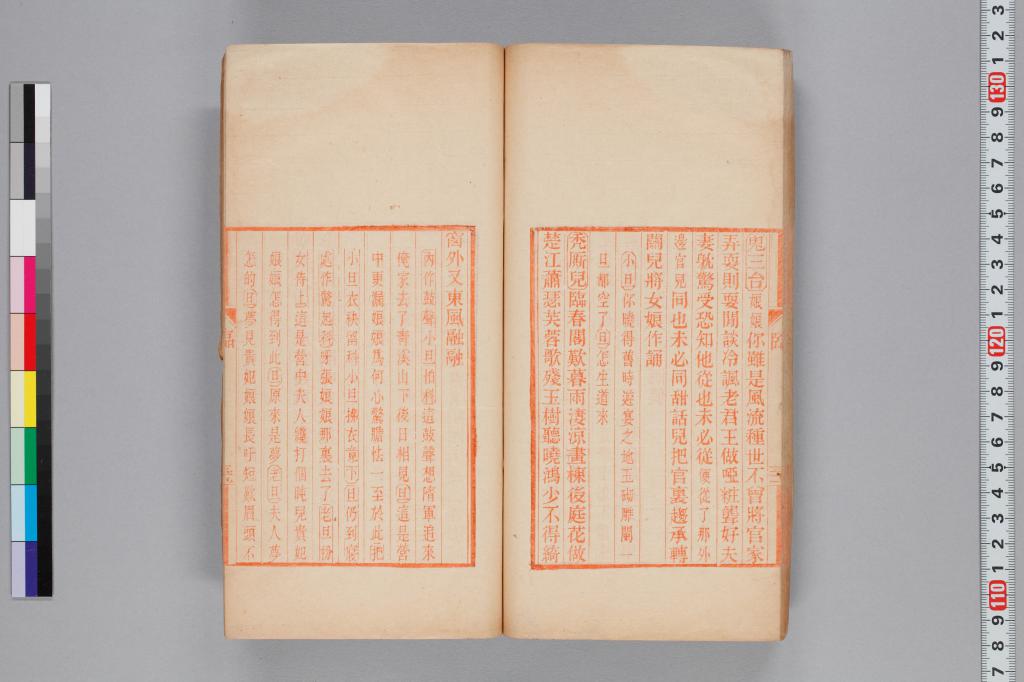 鬼三台娘娘你雖是風流種世不曾將官家
弄耍則耍閒談冷諷老君王做啞粧聾好夫
妻躭驚受恐知他從也未必從便從了那外
邊官兒同也未必同甜話兒把官裏趨承轉
關兒將女娘作誦
小旦你曉得舊時遊宴之地玉砌雕闌一
旦都空了旦怎生道來
禿廝兒臨春閣歎暮雨淒涼畫棟後庭花做
楚江蕭瑟芙蓉歌殘玉樹聽曉鴻少不得綺
窗外又東風融融
內作鼓聲小旦拍科這鼓聲想隋軍追來
俺家去了青溪山下後日相見旦這是營
中更漏娘娘爲何小驚膽怯一至於此把
小旦衣袂留科小旦拂衣竟下旦仍到寢
處作驚起科呀張娘娘那裏去了老旦扮
女侍上這是營中夫人纔打個盹兒貴妃
娘娘怎得到此旦原來是夢老旦夫人夢
怎的旦夢見貴妃娘娘長吁短歎眉頭不